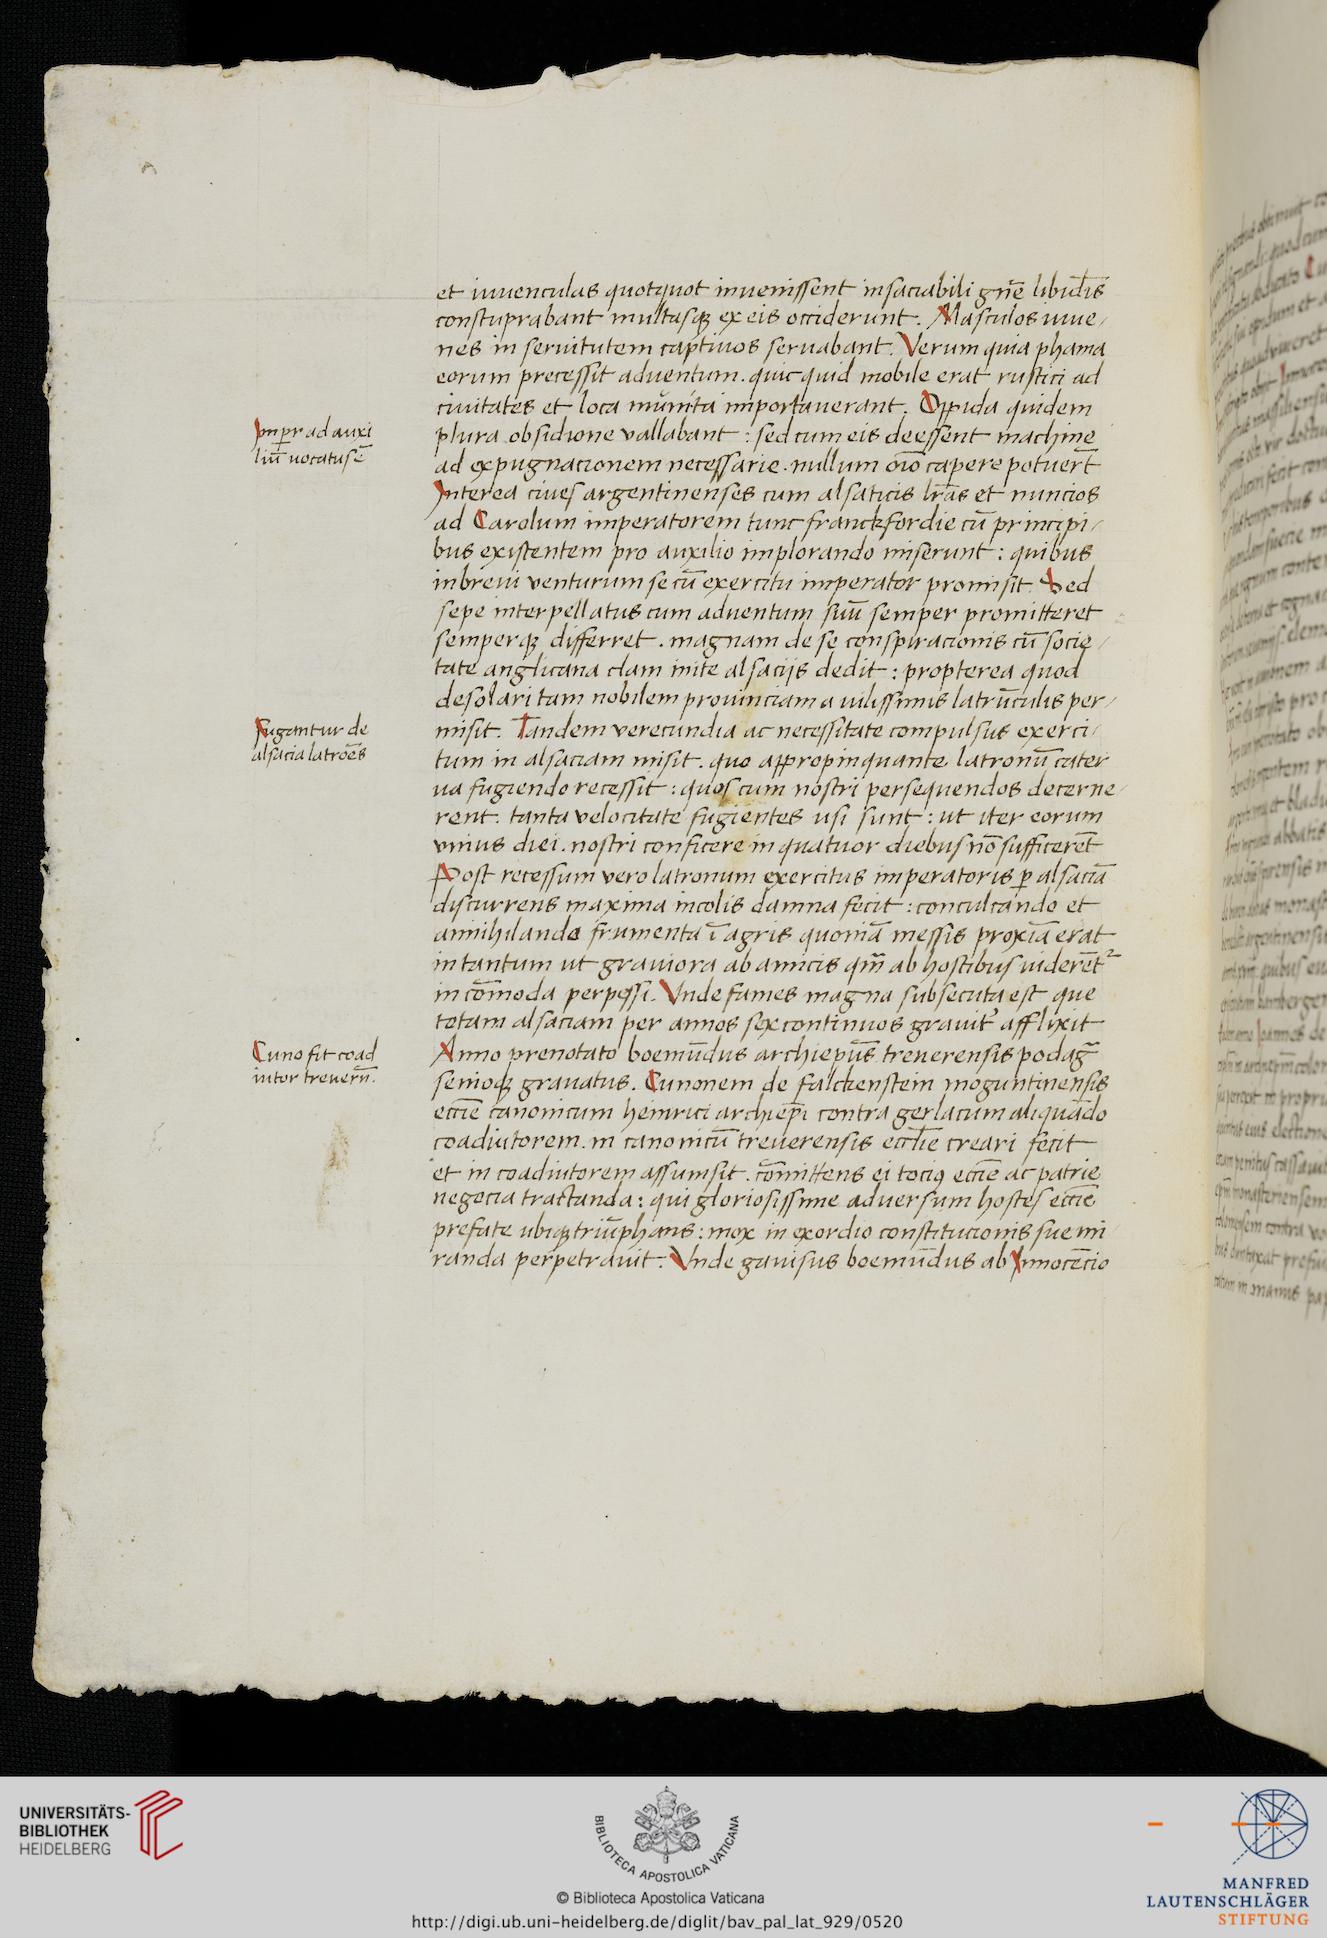 et iuuenculas quotquot inuenissent insaciabili gn̄e libidīs
constuprabant multasqꝫ ex eis occiderunt. Masculos iuue-
nes in seruitutem captiuos seruabant. Verum quia phama
eorum precessit aduentum. quicquid mobile erat rustici ad
ciuitates et loca munita importauerant. Oppida quidem
Impr̄ ad auxi
liū uocatus ē
plura obsidione vallabant : sed cum eis deessent machine
ad expugnacionem necessarie. nullum oīo capere potuert̄
Interea ciues argentinenses cum alsaticis lr̄as et nuncios
ad Carolum imperatorem tunc franckfordie cū principi-
bus existentem pro auxilio implorando miserunt : quibus
in breui venturum se cū exercitu imperator promisit. Sed
sepe interpellatus cum aduentum suū semper promitteret
semperqꝫ differret. magnam de se conspiracionis cū socie-
tate anglicana clam inite alsacijs dedit : propterea quod
desolari tam nobilem prouinciam a uilissimis latrūculis per-
Fugantur de
alsacia latrōes
misit. Tandem verecundia ac necessitate compulsus exerci-
tum in alsaciam misit. quo appropinquante latronū cater
ua fugiendo recessit : quos cum nostri persequendos decerne-
rent. tanta velocitate fugientes usi sunt : ut iter eorum
vnius diei. nostri conficere in quatuor diebus nō sufficerēt
Post recessum vero latronum exercitus imperatoris ꝑ alsaciā
discurrens maxima incolis damna fecit : conculcando et
annihilando frumenta ī agris quoniā messis proxīa erat
in tantum ut grauiora ab amicis qm̄ ab hostibus uiderētᷣ
incōmoda perpessi. Vnde fames magna subsecuta est que
totam alsaciam per annos sex continuos grauitᷣ afflixit
Cuno fit coad
iutor treuern̄.
Anno prenotato boemūdus archiepūs treuerensis podagᷓ
senioqꝫ grauatus. Cunonem de falckenstein moguntinensis
eccīe canonicum heinrici archiep̄i contra gerlacum aliquādo
coadiutorem. in canonicū treuerensis ecclīe creari fecit
et in coadiutorem assumsit. cōmittens ei tociꝰ eccīe ac patrie
negocia tractanda : qui gloriosissime aduersum hostes eccīe
prefate ubiqꝫ triūphans : mox in exordio constitucionis sue mi
randa perpetrauit. Vnde gauisus boemūdus ab Innocēcio
UNIVERSITÄTS-
BIBLIOTHEK
HEIDELBERG
BIBLIOTECA APOSTOLICA VATICANA
© Biblioteca Apostolica Vaticana
http://digi.ub.uni-heidelberg.de/diglit/bav_pal_lat_929/0520
MANFRED
LAUTENSCHLÄGER
STIFTUNG